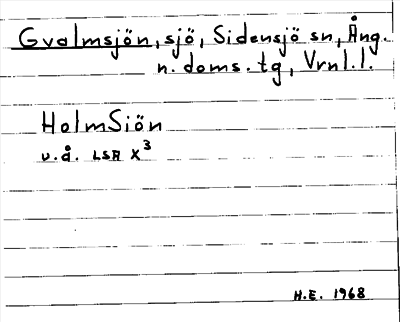 Gvalmsjön, sjö, Sidensjö sn, Ång.
n. doms. tg, Vrnl. l.
HolmSiön
u.å. LSA X³
H.E. 1968